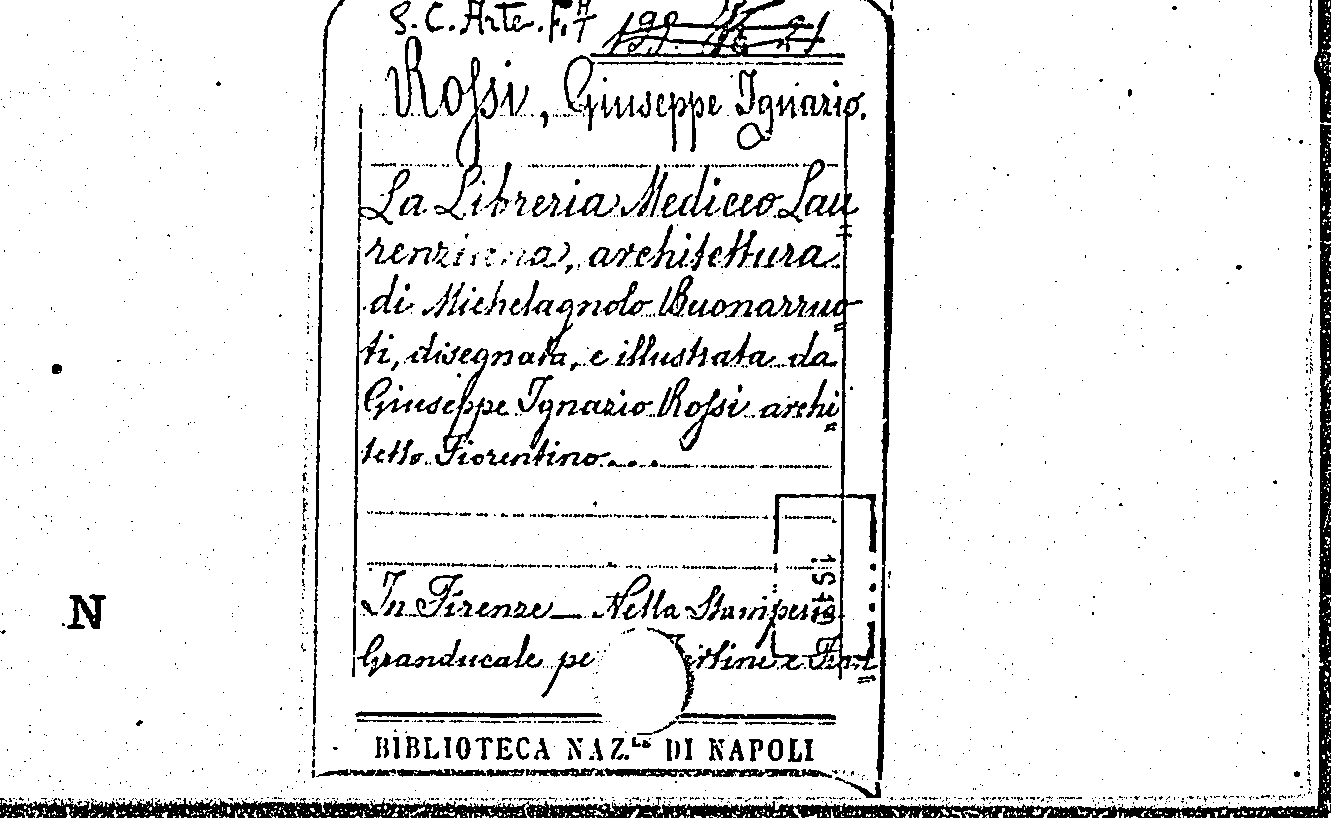 S. C. Arte. F. 7 A
Rossi, Giuseppe Ignazio.
La Libreria Mediceo Lau=
renziana, architettura
di Michelagnolo Buonarruo=
ti, disegnata, e illustrata da
Giuseppe Ignazio Rossi archi=
tetto Fiorentino...
In Firenze — Nella Stamperia
Granducale pe
N
BIBLIOTECA NAZ.LE DI NAPOLI